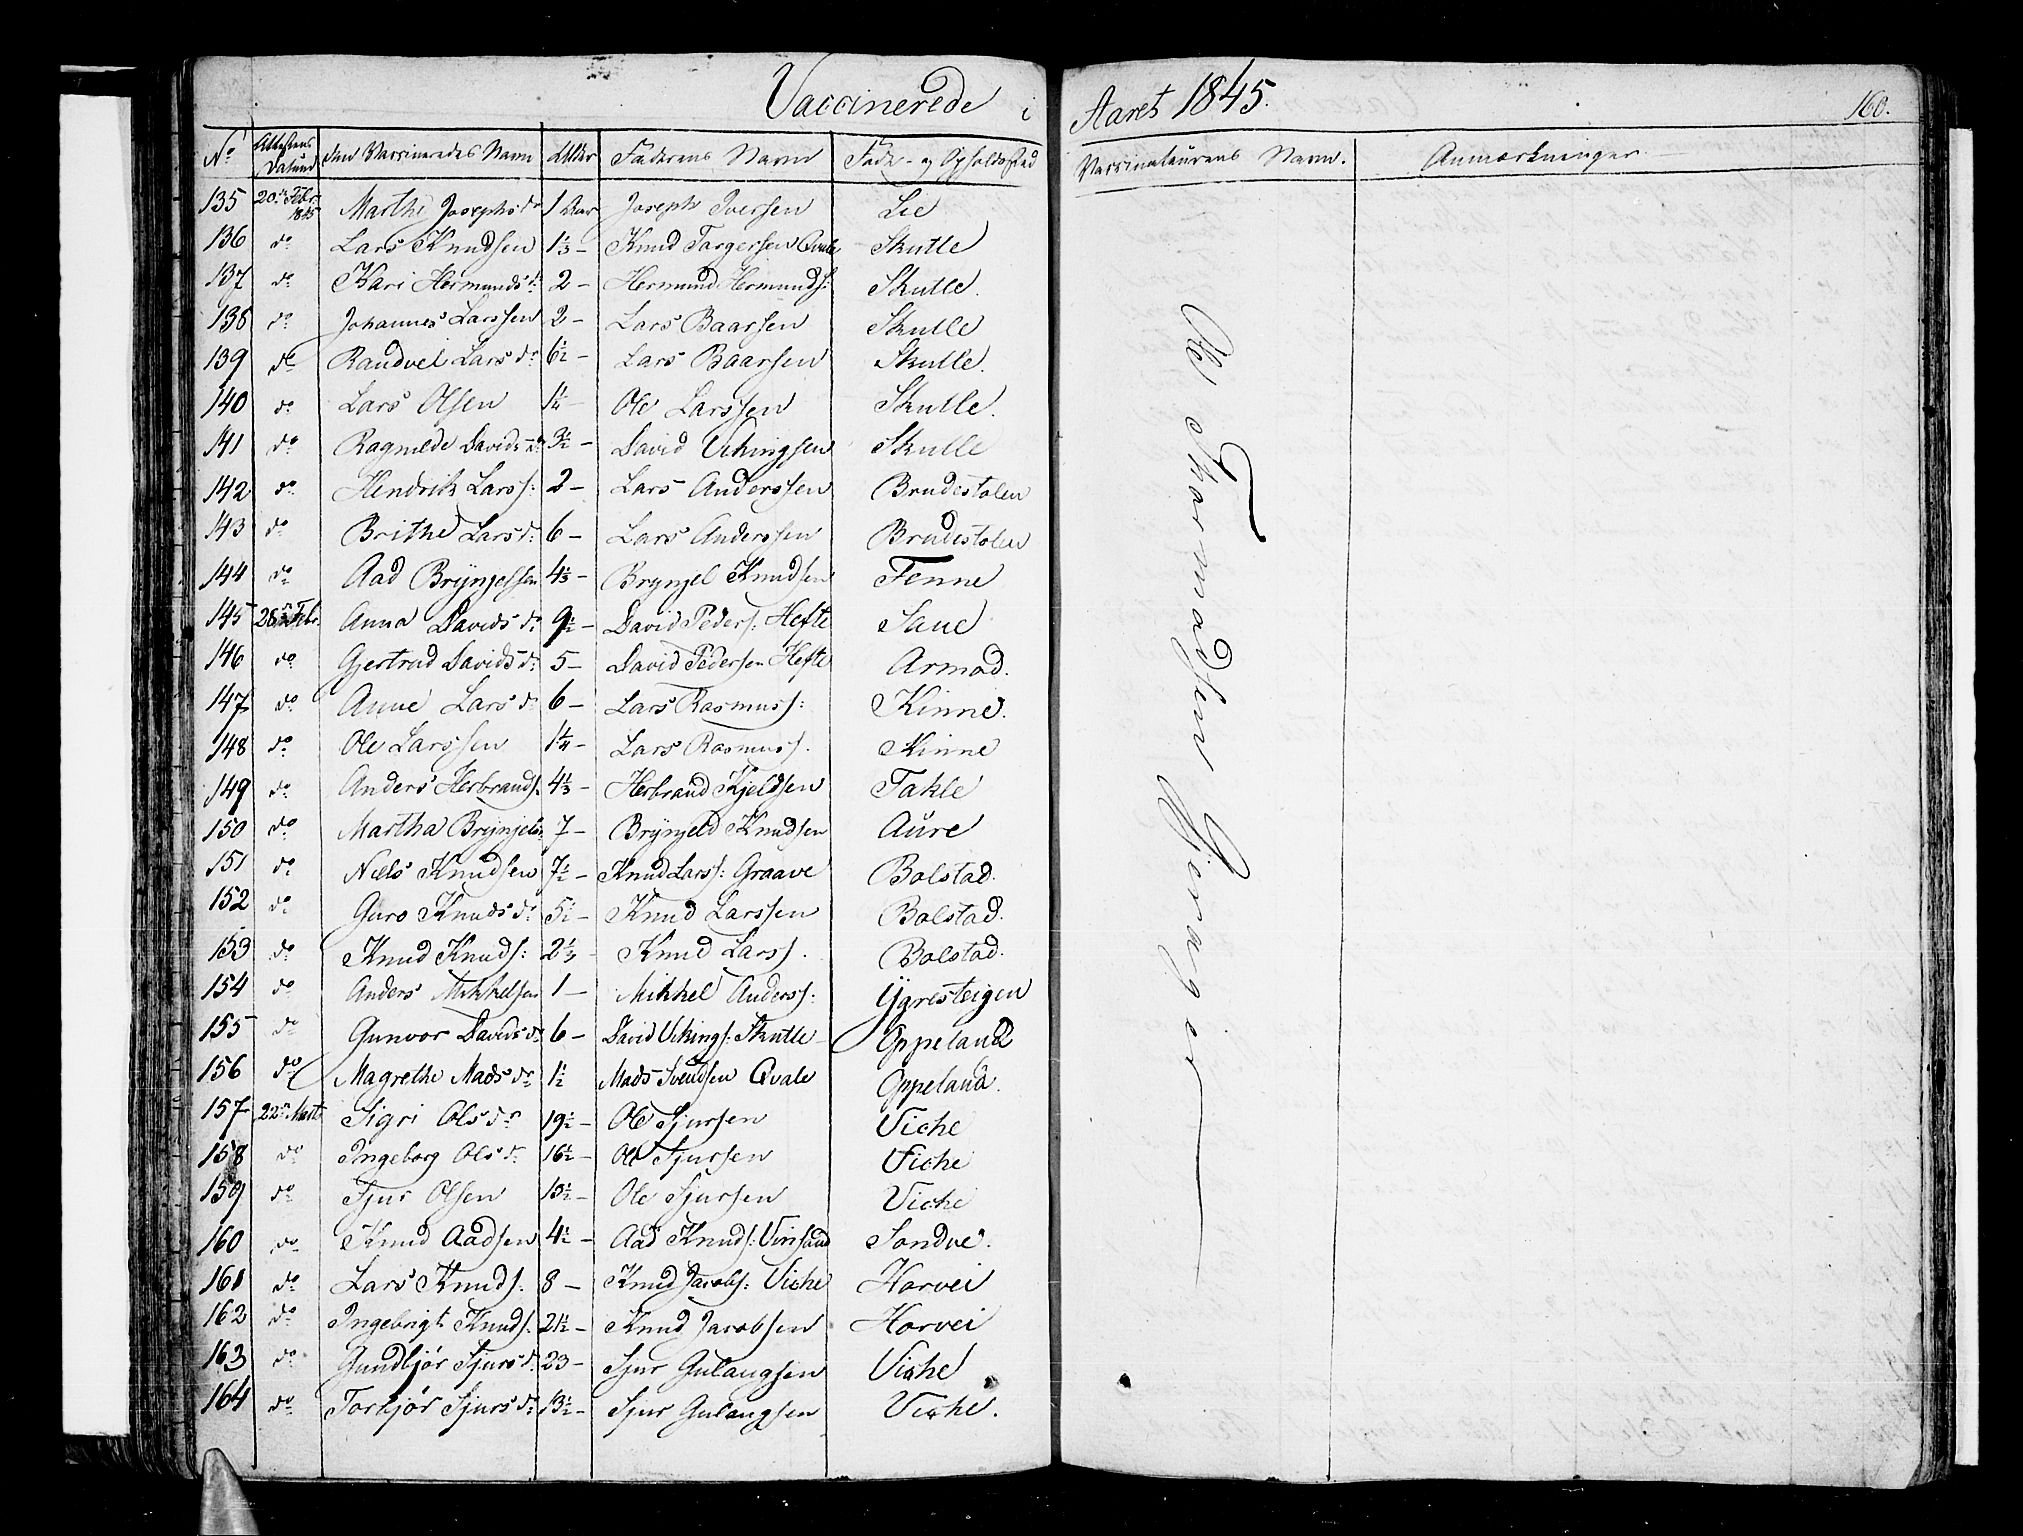 Vaccinerede i Aaret 1845.
160.
No Attestens Datum den Vaccineredes Navn Alder Faderens Navn Føde- og Opholdssted Vaccinateurens Navn. Anmærkninger
135 20de Febr. 1845 Marthe Josephsdr 1 Aar Joseph Iversen Lie
136 do Lars Knudsen 1⅓ – Knud Torgersen Qvale Skutle
137 do Kari Hermundsd: 2 – Hermund Hermunds: Skutle.
138 do Johannes Larssen 2 – Lars Baarsen Skutle
139 do Randvei Larsdr 6½ – Lars Baarsen Skutle.
140 do Lars Olsen 1¼ – Ole Larssen Skutle.
141 do Ragnilde Davidsdr 3½ – David Vikingsen Skutle
142 do Hendrik Larss: 2 – Lars Anderssen Brudestolen
143 do Brithe Larsd: 6 – Lars Anderssen Brudestolen
144 do Aad Brynjelsen 4⅓ – Brynjel Knudsen Fenne
145 28de Febr. Anna Davidsdr 9½ – David Peders: Hefte Saue
146 do Gjertrud Davidsd: 5 – David Pedersen Hefte Armod.
147 do Anne Larsdr 6 – Lars Rasmuss: Kinne.
148 do Ole Larssen 1¼ – Lars Rasmuss. Kinne
149 do Anders Herbrands. 4⅓ – Herbrand Kjeldsen Takle
150 do Martha Brynjels 7 – Brynjeld Knudsen Aure
151 do Niels Knudsen 7½ – Knud Larss: Graave Bolstad.
152 do Guro Knudsdr 5½ – Knud Larssen Bolstad.
153 do Knud Knuds: 2⅓ – Knud Larss. Bolstad.
154 do Anders Mikkelsen 1 – Mikkel Anderss: Ygresteigen
155 do Gunvor Davidsdr 6 – David Vikings: Skutle Oppeland
156 do Magrethe Madsdr 1½ Mads Svendsen Qvale Oppeland.
157 22de Marts Sigri Olsdr 19½ – Ole Sjursen Viche
158 do Ingeborg Olsdr 16½ – Ole Sjursen Viche
159 do Sjur Olsen 13½ – Ole Sjursen Viche
160 do Knud Aadsen 4½ – Aad Knuds: Vinsand Sondve.
161 do Lars Knuds: 8 – Knud Jacobs: Viche Horvei
162 do Ingebrigt Knuds. 2½ – Knud Jacobsen Horvei
163 do Gundbjør Sjursdr 23 – Sjur Gulaugsen Viche
164 do Torbjør Sjursdr 13½ – Sjur Gulaugsen Viche.
Thormodsen Gjerager